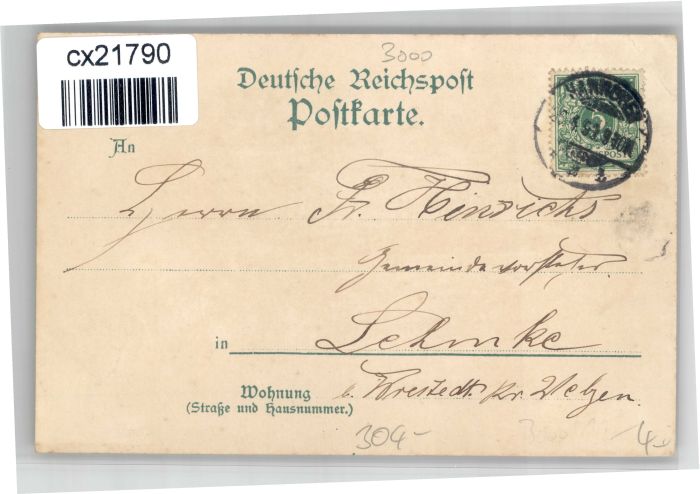 cx21790
3000
Deutsche Reichspost
Postkarte.
HANNOVER
5
An
Herrn Fr. Hinrichs
Gemeindevorsteher
in Lehmke
Wohnung
(Straße und Hausnummer.)
b. Wrestedt. Kr. Uelzen.
304-
4.-